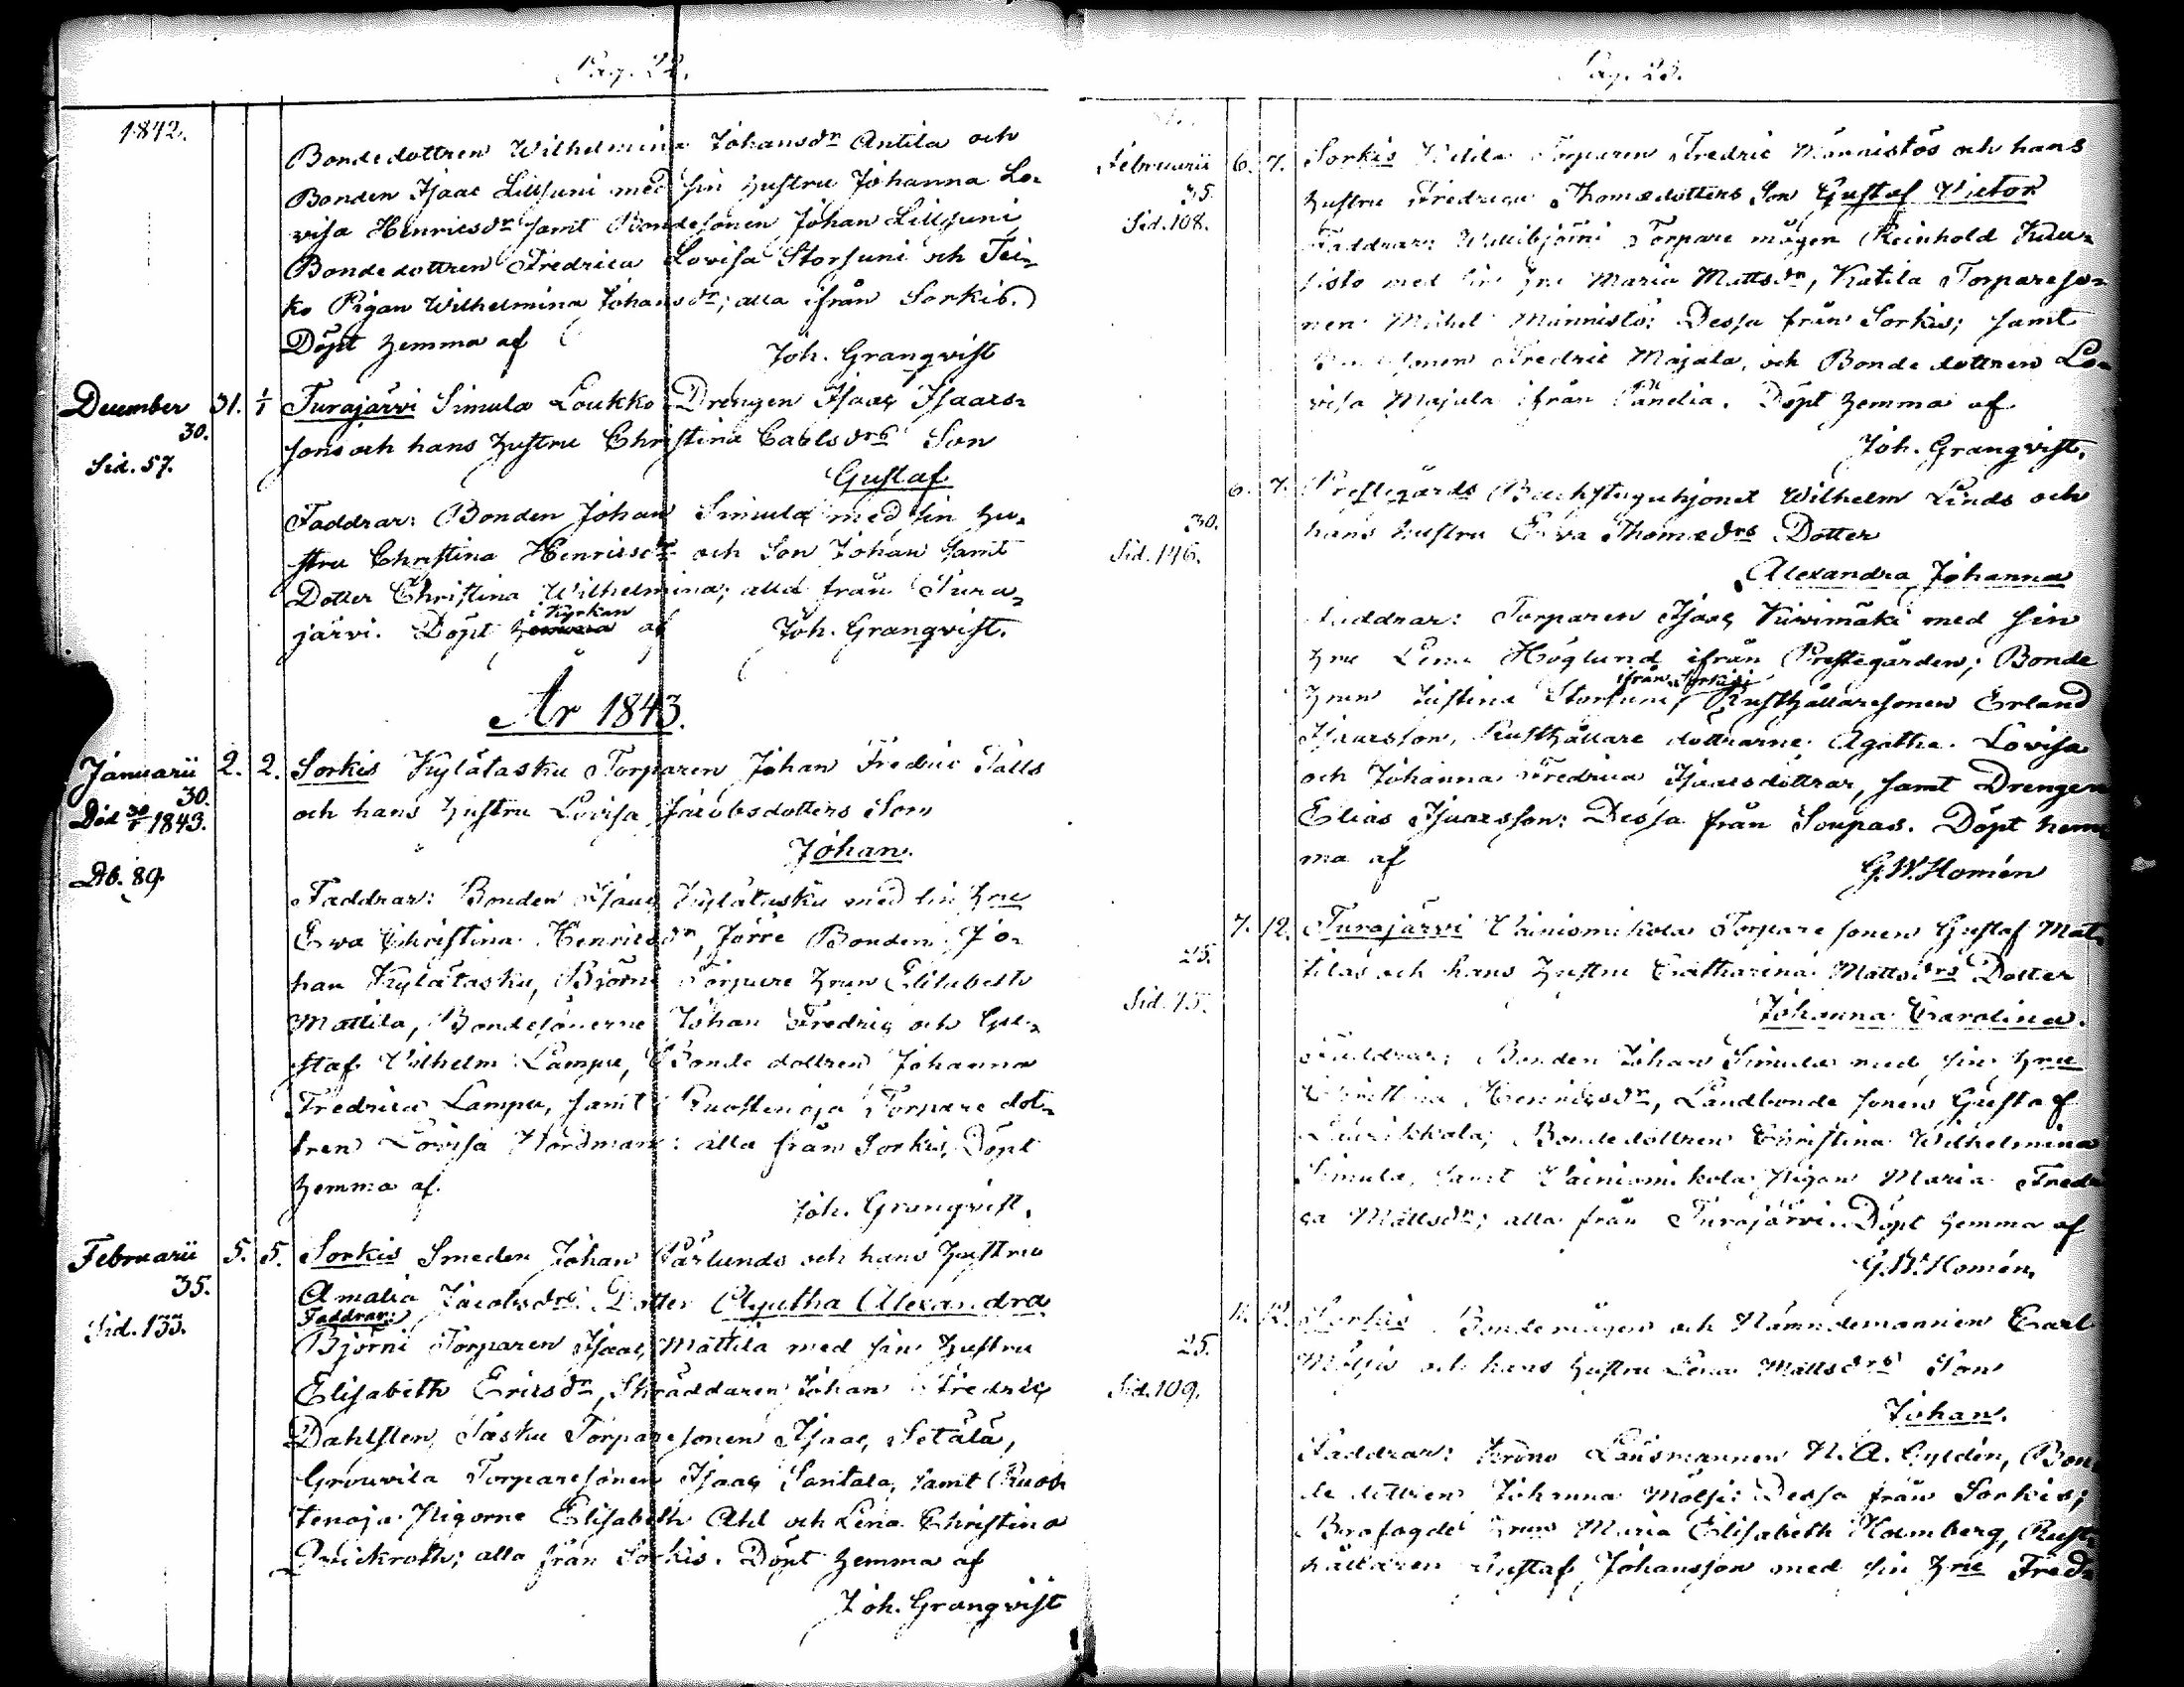 Pag. 22.
1842.
Bondedottren Wilhelmina Johansdr Antila och
Bonden Isaac Lillsuni med sin hustru Johanna Lo-
visa Henricsdr samt Bondesonen Johan Lillsuni,
Bondedottren Fredrica Lovisa Storsuni och Tei-
ko Pigan Wilhelmina Johansdr; alla ifrån Sorkis.
Döpt hemma af
Joh. Granqvist
December 31. 1/1 Turajärvi Simula Loukko Drengen Isaac Isaacs-
30.
sons och hans hustru Christina Carlsdrs Son
Sid. 57.
Gustaf
Faddrar: Bonden Johan Simula med sin hu-
stru Christina Henricsdr och Son Johan samt
Dotter Christina Wilhelmina; alla från Tura-
i Kyrkan
järvi. Döpt hemma af Joh. Granqvist.
År 1843.
Januarii 2. 2. Sorkis Kylätasku Torparen Johan Fredric Palls
30.
och hans hustru Lovisa Jacobsdotters Son
Död 30/1 1843.
Johan.
Ab. 89.
Faddrar: Bonden Isaac Kylätasku med sin hru
Ewa Christina Henricsdr, Jörre Bonden Jo-
han Kylätasku, Björni Torpare hrun Elisabeth
Mattila, Bondesönerne Johan Fredric och Gu-
staf Wilhelm Lampu, Bonde dottren Johanna
Fredrica Lampu, samt Ruostenoja Torpare dot-
tren Lovisa Nordman: alla från Sorkis, Döpt
hemma af.
Joh. Granqvist.
Februarii 5. 5. Sorkis Smeden Johan Färlunds och hans hustru
35.
Amalia Jacobsdrs Dotter Agatha Alexandra
Faddrar:
Sid. 133.
Björni Torparen Isaac Mattila med sin hustru
Elisabeth Ericsdr, Skräddaren Johan Fredric
Dahlsten, Tasku Torparesonen Isaac Setälä,
Grouvila Torparesonen Isaac Santala, samt Ruos-
tenoja Pigorne Elisabeth Ahl och Lena Christina
Qvickroth; alla från Sorkis. Döpt hemma af
Joh. Granqvist
Pag. 23.
Februarii 6. 7. Sorkis Torparen Fredric Männistös och hans
35.
hustru Fredrica Thomædotters Son Gustaf Victor
Sid. 108.
Faddrar: Torpare mågen Reinhold Kau-
nisto med sin hru Maria Mattsdr, Katila Torpareso-
nen Michel Männistö: Dessa från Sorkis; samt
Bondesonen Fredric Majala, och Bonde dottren Lo-
visa Majala ifrån Panelia. Döpt hemma af
Joh. Granqvist.
6. 7. Prestegårds Backstuguhjonet Wilhelm Linds och
30.
hans hustru Ewa Thomædrs Dotter
Sid. 146.
Alexandra Johanna
Faddrar: Torparen Isaac Kivimäki med sin
hru Lena Höglund ifrån Prestegården; Bonde
ifrån Sorkis;
hrun Justina Storsuni Rusthållaresonen Erland
Isaacsson, Rusthållare döttrarne Agatha Lovisa
och Johanna Fredrica Isaacsdöttrar, samt Drengen
Elias Isaacsson: Dessa från Soupas. Döpt hem-
ma af
G.W. Homén
7. 12. Turajärvi Vainiomikola Torpare sonen Gustaf Mat-
25.
tilas och hans hustru Catharina Mattsdrs Dotter
Sid. 75.
Johanna Carolina.
Faddrar: Bonden Johan Simula med sin hru
Christina Henricsdr, Landbonde sonen Gustaf
Bondedottren Christina Wilhelmina
Simula, samt Vainiomikola Pigan Maria Fredri-
ca Mattsdr; alla från Turajärvi. Döpt hemma af
G.W. Homén.
12. Sorkis Bondemågen och Nämndemannen Carl
25.
Mölsis och hans hustru Lena Mattsdrs Son
Sid. 109.
Johan.
Faddrar: Krono Länsmannen N.A. Gyldén, Bon-
de dottren Johanna Mölsi: Dessa från Sorkis;
Brofogde hrun Maria Elisabeth Holmberg, Rust-
hållaren Gustaf Johansson med sin hru Fred-